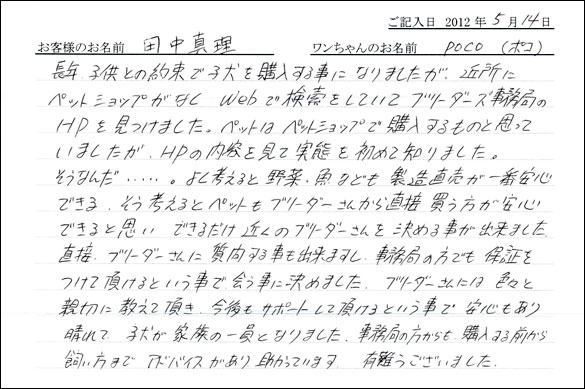 ご記入日 2012年5月14日
お客様のお名前 田中真理 ワンちゃんのお名前 POCO (ポコ)
長年子供との約束で子犬を購入する事になりましたが、近所に
ペットショップがなく Webで検索をしていて ブリーダーズ事務局の
HPを見つけました。ペットはペットショップで購入するものと思って
いましたが、HPの内容を見て実態を初めて知りました。
そうなんだ……。よく考えると野菜・魚なども製造直売が一番安心
できる、そう考えるとペットもブリーダーさんから直接買う方が安心
できると思い できるだけ近くのブリーダーさんを決める事が出来ました
直接、ブリーダーさんに質問する事も出来ますし、事務局の方でも保証を
つけて頂けるという事で会う事に決めました。ブリーダーさんには色々と
親切に教えて頂き、今後もサポートして頂けるという事で安心もあり
晴れて、子犬が家族の一員となりました。事務局の方からも、購入する前から
飼い方まで アドバイスがあり助かっています。 有難うございました。